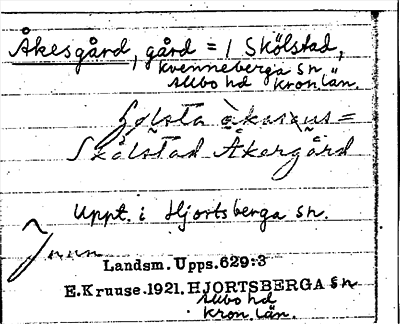 Åkesgård, gård = / Skölstad,
Kvenneberga sn
Allbo hd Kron. län.
Skölstad Åkergård
Uppt. i Hjortsberga sn.
Landsm. Upps. 629:3
E. Kruuse. 1921. HJORTSBERGA sn
Allbo hd
Kron. län.